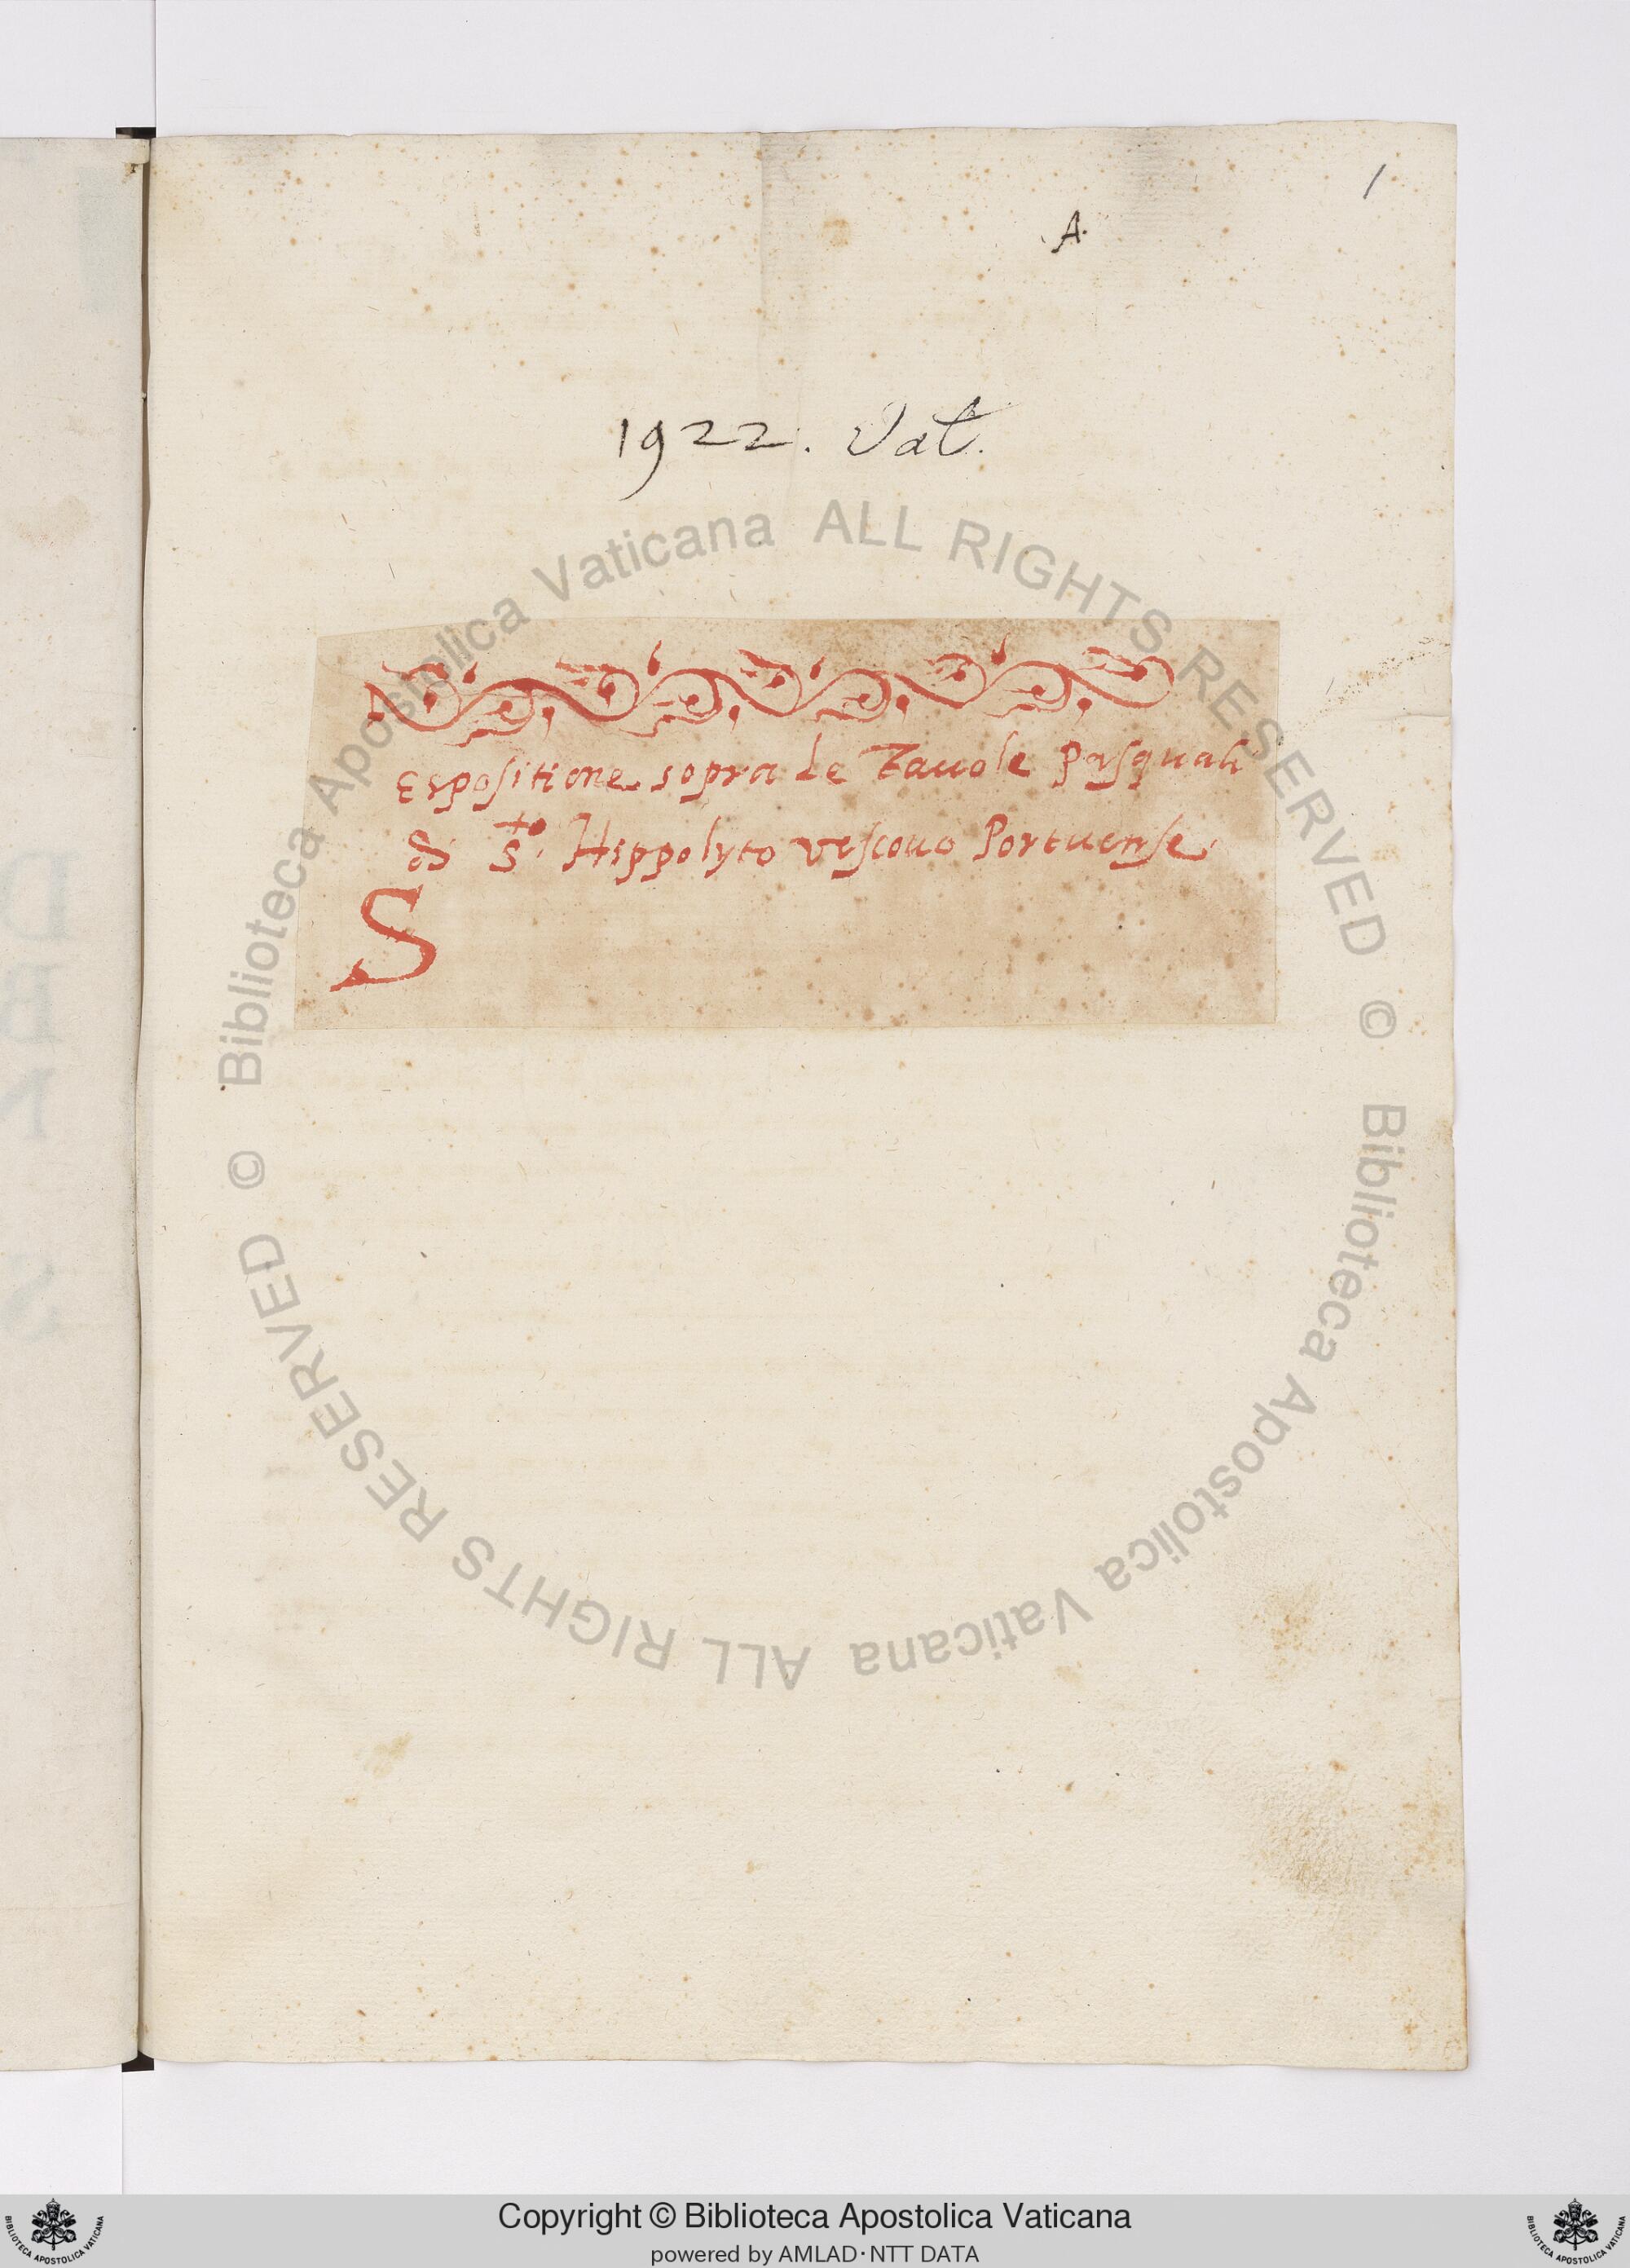 1
A.
1922. Vat.
Espositione sopra le Tauole Pasquali
di S.to Hippolyto vescouo Portuense.
S
© Biblioteca Apostolica Vaticana ALL RIGHTS RESERVED
© Biblioteca Apostolica Vaticana ALL RIGHTS RESERVED
Copyright © Biblioteca Apostolica Vaticana
powered by AMLAD·NTT DATA
BIBLIOTECA APOSTOLICA VATICANA
BIBLIOTECA APOSTOLICA VATICANA